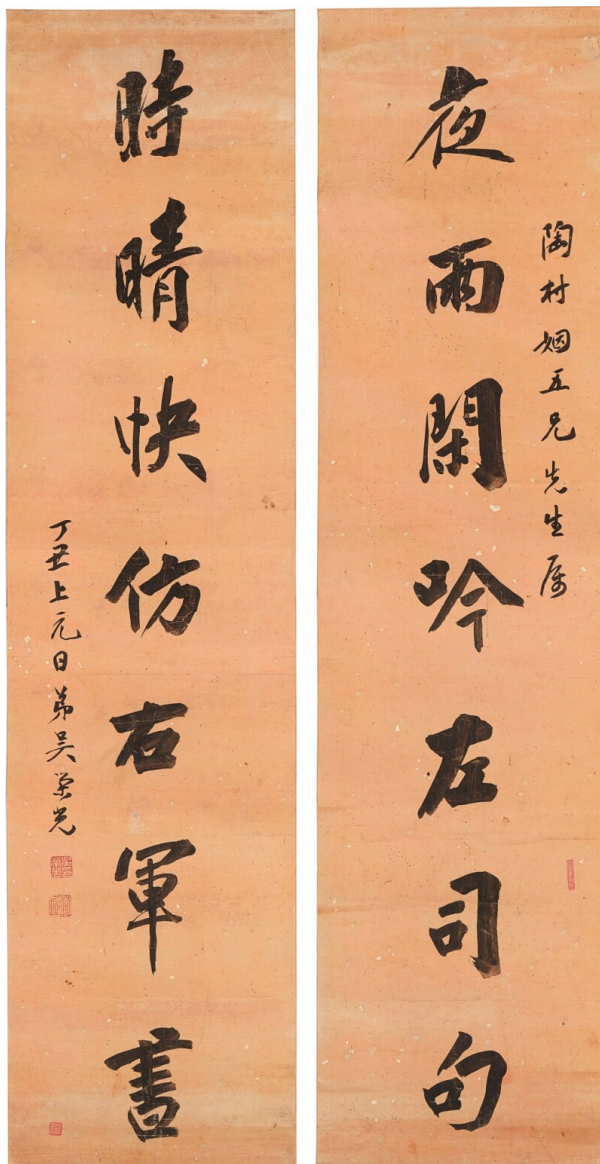 陶村姻五兄先生属
夜雨閑吟左司句
時晴快仿右軍書
丁丑上元日弟吴荣光